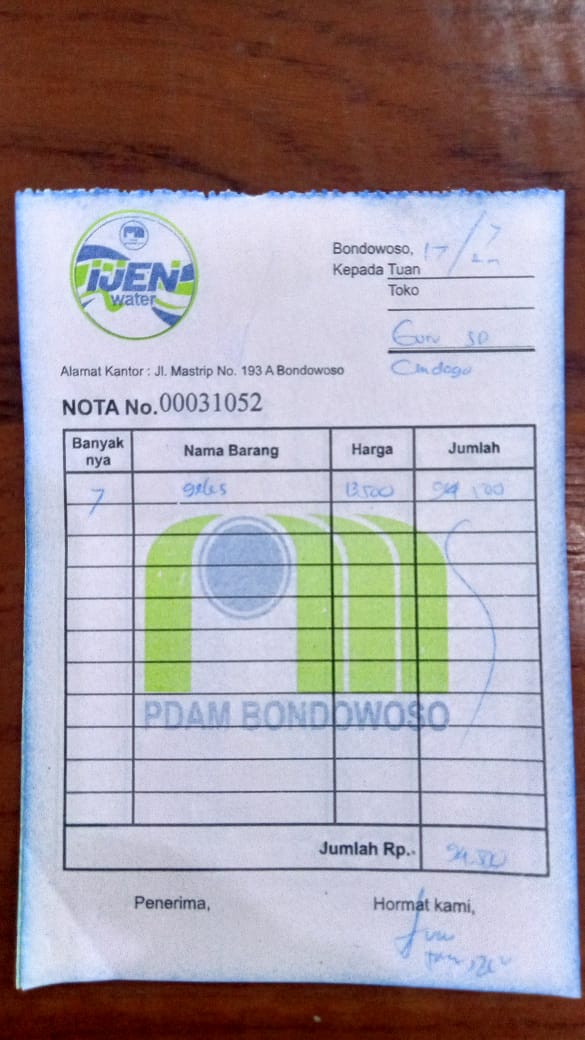 IJEN
water
Bondowoso, 17/7
Kepada Tuan
Toko
Guru SD
Alamat Kantor : Jl. Mastrip No. 193 A Bondowoso
NOTA No. 00031052
Banyak nya Nama Barang Harga Jumlah
7 gelas 13.500
PDAM BONDOWOSO
Jumlah Rp.
Penerima, Hormat kami,